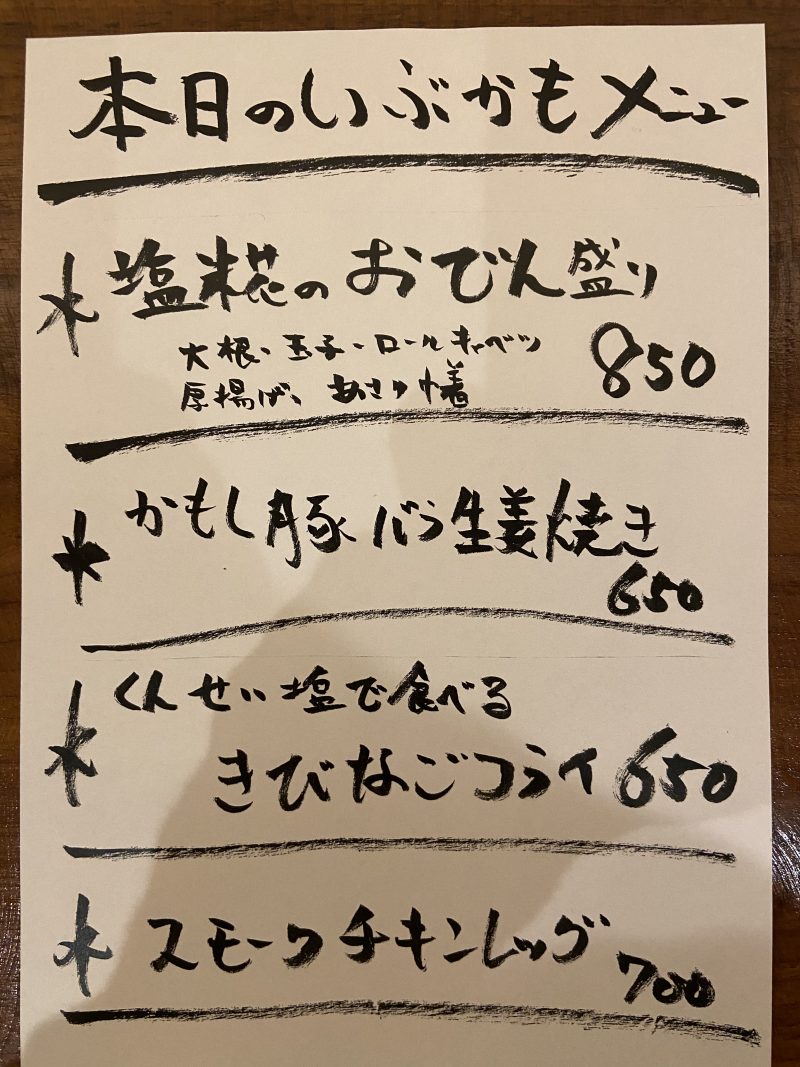 本日のいぶかもメニュー
塩糀のおでん盛り
大根、玉子、ロールキャベツ
厚揚げ、あさり巾着
850
かもし豚バラ生姜焼き
650
くんせい塩で食べる
きびなごフライ 650
スモークチキンレッグ
700